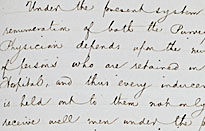 Under the present system
remuneration of both the Purve
Physician depends upon the nu
of persons who are retained in
Hospital, and thus every induce
is held out to them not only
receive well men under the